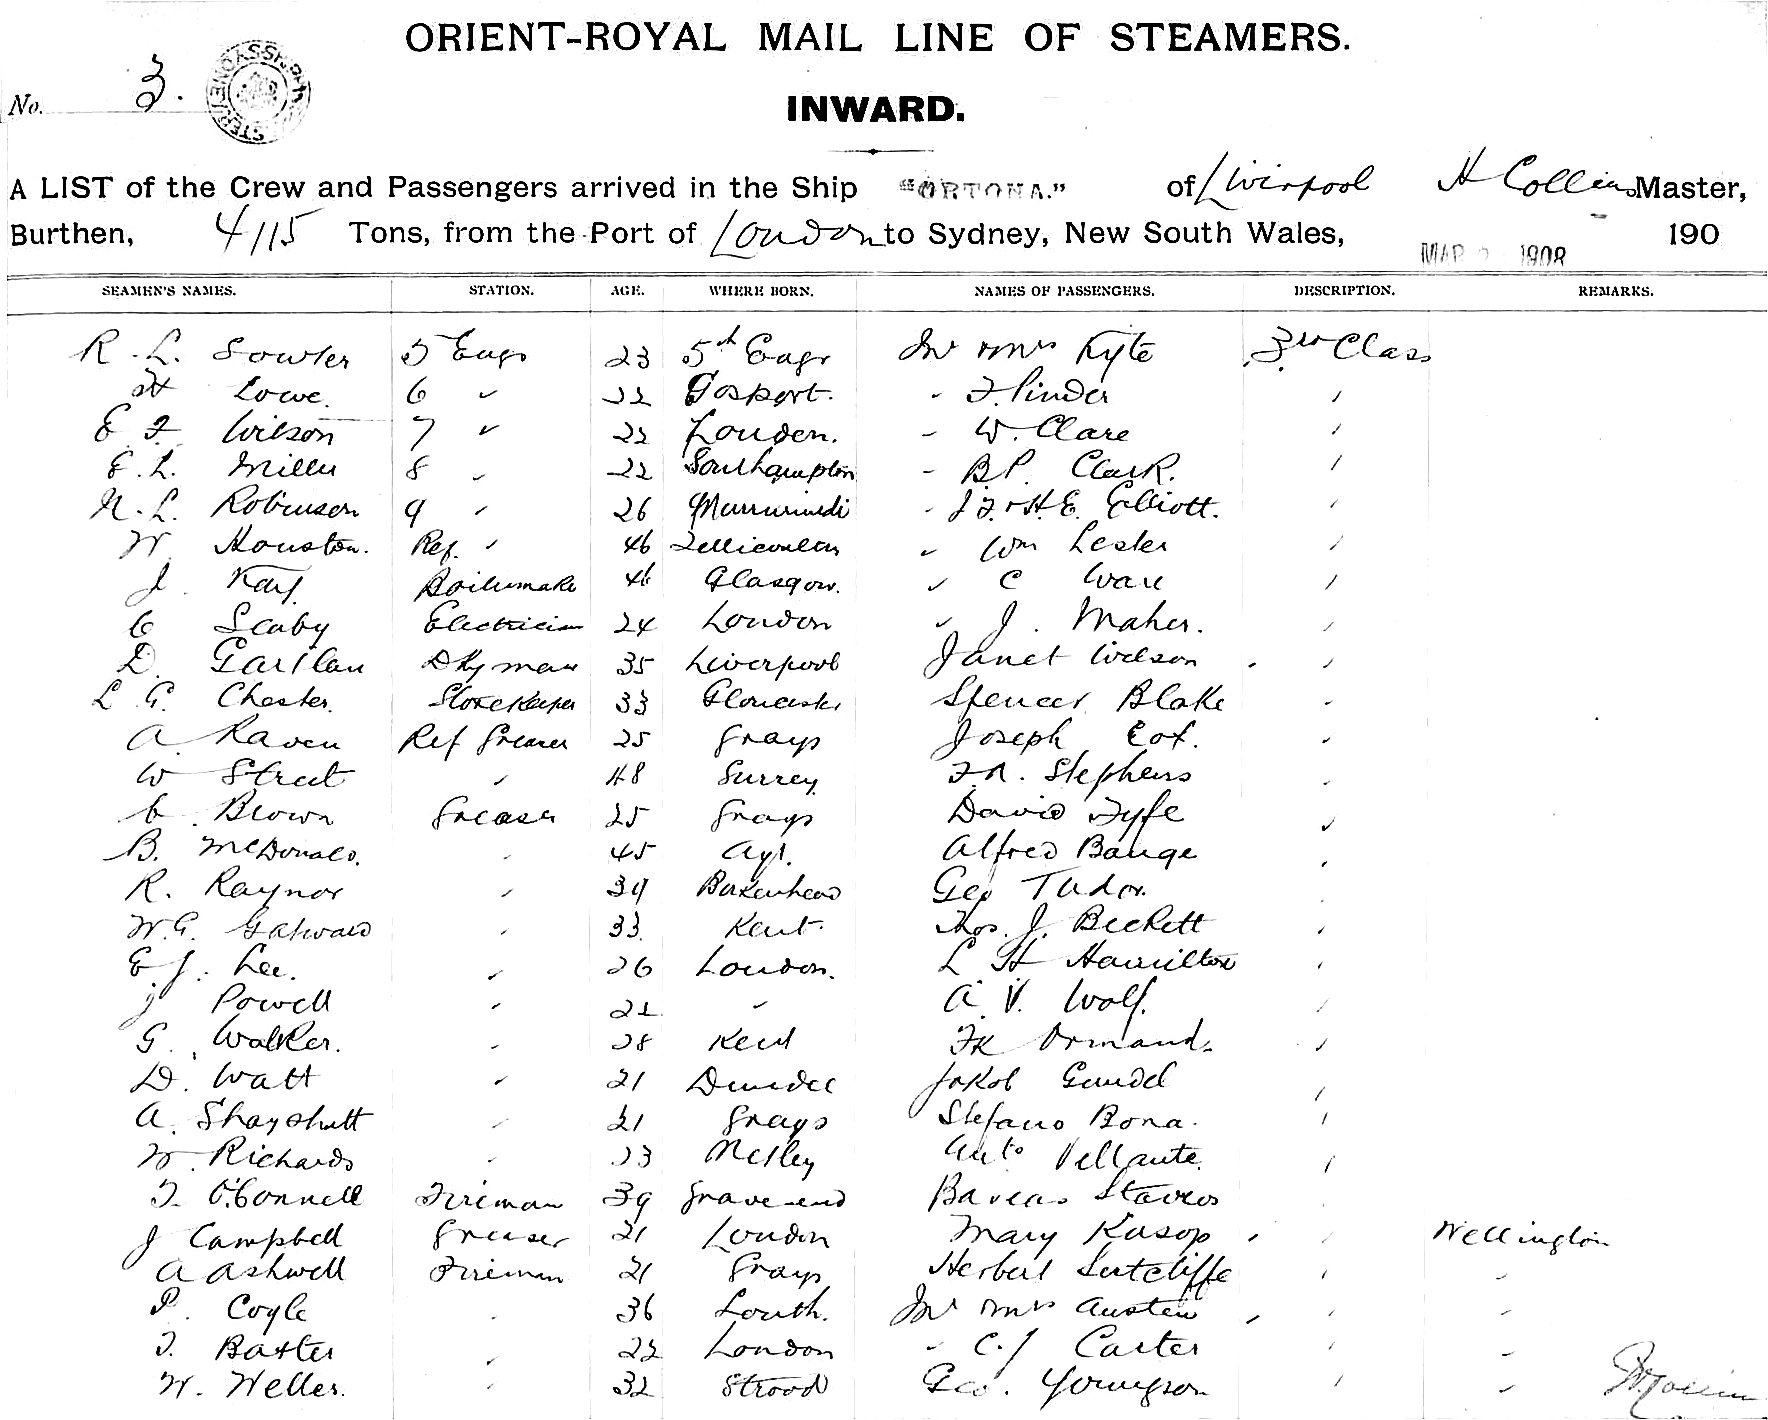 ORIENT-ROYAL MAIL LINE OF STEAMERS.
No. 3.
INWARD.
A LIST of the Crew and Passengers arrived in the Ship "ORTONA." of Liverpool H Collins Master,
Burthen, 4115 Tons, from the Port of London to Sydney, New South Wales, MAR 1908 190
SEAMEN'S NAMES. STATION. AGE. WHERE BORN. NAMES OF PASSENGERS. DESCRIPTION. REMARKS.
R. L. Sowter 5 Engr 23 5th Engr Mr & Mrs Kyte 3rd Class
H Lowe. 6 " 22 Gosport. " F. Pinder "
E F Wilson 7 " 22 London. " W. Clare "
E. L. Miller 8 " 22 Southampton " B.P. Clark. "
N. L. Robinson 9 " 26 Murrurundi " J F. & H. E. Elliott. "
W Houston. Ref. " 46 " Wm Lester "
J. Boilermaker 46 Glasgow. " C Ware "
C Scaby Electrician 24 London " J. Maher. "
D. Gartlan Dkyman 35 Liverpool Janet Wilson "
L G. Chester. Storekeeper 33 Gloucester Spencer Blake "
A. Raven Ref Greaser 25 Grays Joseph Cox. "
W Street " 48 Surrey F. R. Stephens "
C. Brown Greaser 25 Grays David Fyfe "
B. McDonald. " 45 Ayr. Alfred Bauge "
R. Raynor " 39 Birkenhead Geo Tudor. "
W. G. " 33 Kent. Thos. J. Beckett "
E J. Lee. " 26 London. L H Hamilton "
J Powell " 22 " A. V. Wolf. "
G. Walker. " 28 Kent Fk Ormand. "
D. Watt " 21 Dundee Jakob Gundel "
A. Shayshutt " 21 Grays Stefano Bona. "
W. Richards " 23 Netley Anto Vellante. "
T. O'Connell Fireman 39 Gravesend Baveas Stavros
J Campbell Greaser 21 London Mary Kasop " Wellington
A Ashwell Fireman 21 Grays Herbert Sutcliffe " "
P. Coyle " 36 Louth. Mr & Mrs Austen " "
T. Baxter " 22 London " C. J Carter " "
W. Weller. " 32 Strood Geo. Youngson " "
H Collins